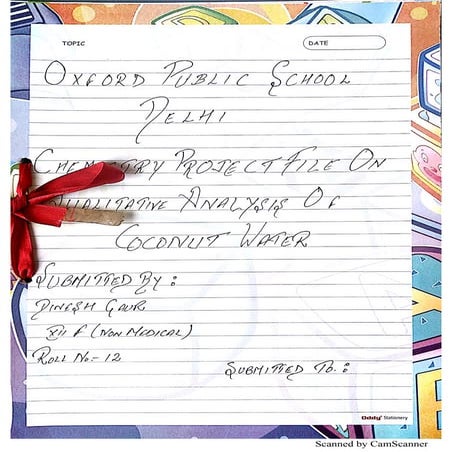 TOPIC
DATE
OXFORD PUBLIC SCHOOL
DELHI
CHEMISTRY PROJECT FILE ON
QUALITATIVE ANALYSIS OF
COCONUT WATER
SUBMITTED BY :
DINESH GAUR
XII F (NON MEDICAL)
ROLL NO:- 12
SUBMITTED TO :
Oddy Stationery
Scanned by CamScanner